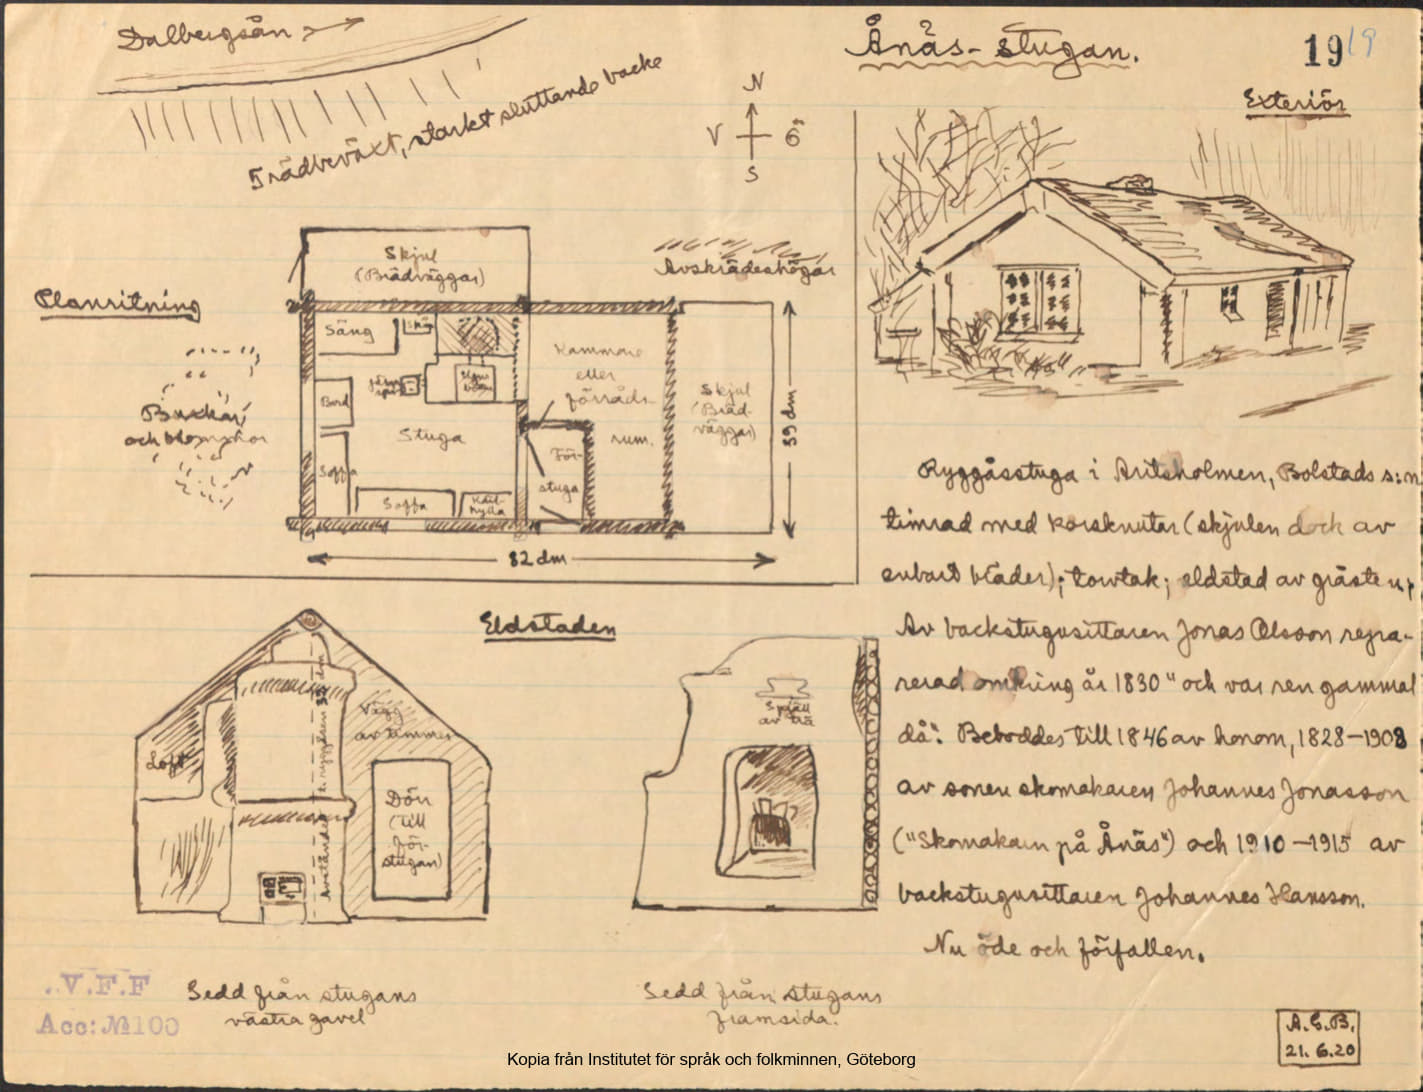 Dalbergsån
Ånäs-stugan.
19
19
Exteriör
Trädbeväxt, starkt sluttande backe
N
V
Ö
S
Planritning
Skjul
(Brädväggar)
Avskrädeshögar
Säng
Skåp
Kammare
eller
förråds-
rum.
Bord
Stuga
Soffa
Soffa
hylla
För-
stuga
Skjul
(Bräd-
väggar)
39 dm
82 dm
Buskar
och blomster
Ryggåsstuga i Aritsholmen, Bolstads s:n
timrad med korsknutar (skjulen dock av
enbart bräder); torvtak; eldstad av gråsten;
Av backstugusittaren Jonas Olsson repa-
rerad omkring år 1830 "och var ren gammal
då". Beboddes till 1846 av honom, 1828–1908
av sonen skomakaren Johannes Jonasson
("Skomakarn på Ånäs") och 1910–1915 av
backstugusittaren Johannes Hansson.
Nu öde och förfallen.
Eldstaden
Loft
Vägg
av timmer
Dörr
(till
för-
stugan)
Spjäll
av trä
Sedd från stugans
västra gavel
Sedd från stugans
framsida.
V.F.F
Acc: № 100
A.G.B.
21.6.20
Kopia från Institutet för språk och folkminnen, Göteborg